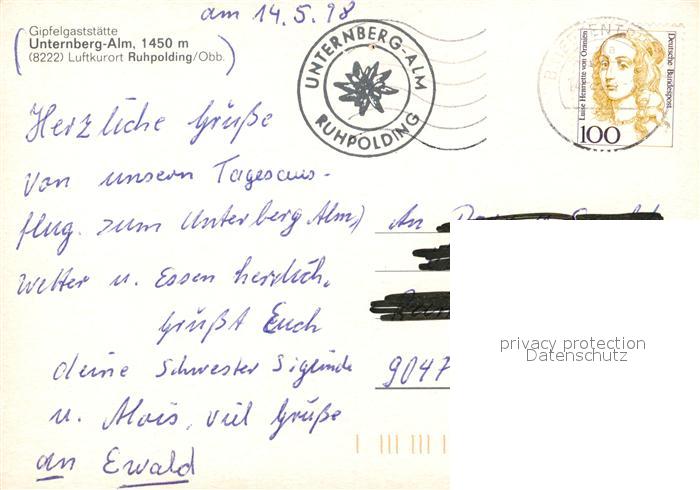 am 14.5.98
Gipfelgaststätte
Unternberg-Alm, 1450 m
(8222) Luftkurort Ruhpolding/Obb.
UNTERNBERG-ALM
RUHPOLDING
Luise Henriette von Oranien
Deutsche Bundespost
100
Herzliche Grüße
von unsern Tagesaus-
flug. zum Unterberg Alm,
Wetter u. Essen herrlich.
grüßt Euch
deine Schwester Siglinde
u. Alois, viel Grüße
an Ewald
An
9047
privacy protection
Datenschutz